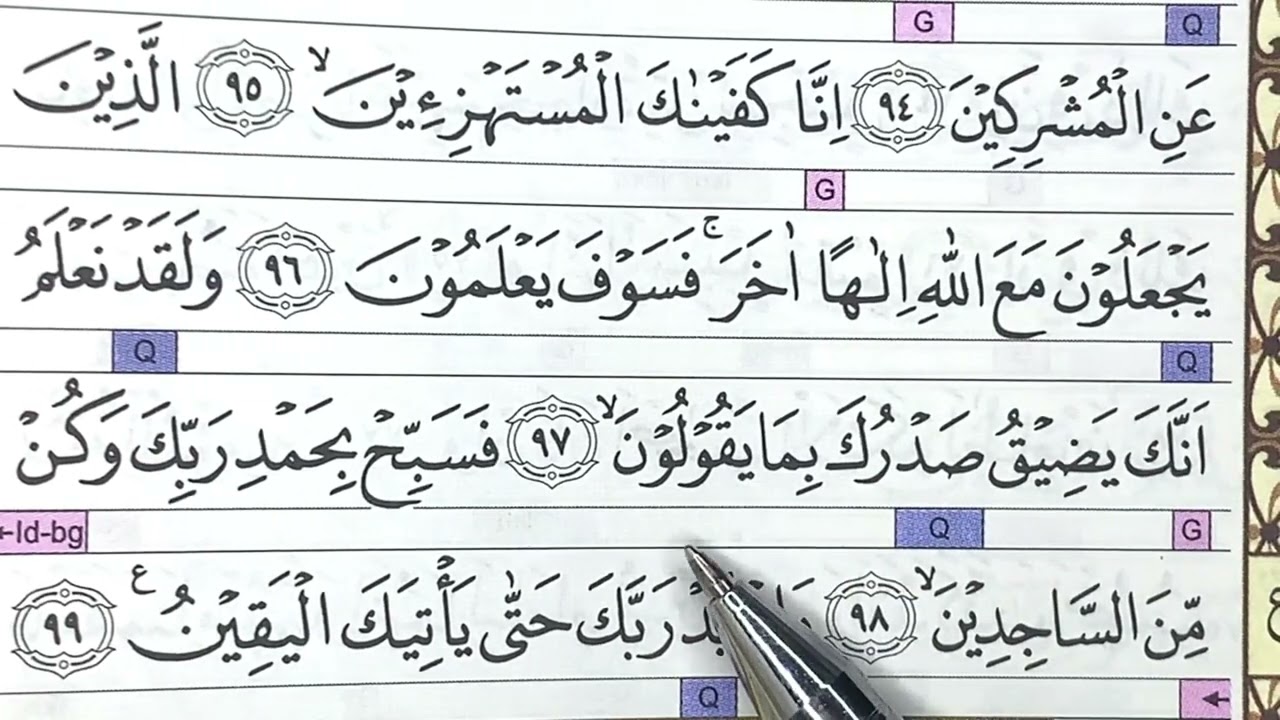 G Q
عَنِ الْمُشْرِكِيْنَ ٩٤ اِنَّا كَفَيْنٰكَ الْمُسْتَهْزِءِيْنَ ۙ ٩٥ الَّذِيْنَ
G
يَجْعَلُوْنَ مَعَ اللّٰهِ اِلٰهًا اٰخَرَ ۚ فَسَوْفَ يَعْلَمُوْنَ ٩٦ وَلَقَدْ نَعْلَمُ
Q Q
اَنَّكَ يَضِيْقُ صَدْرُكَ بِمَا يَقُوْلُوْنَ ۙ ٩٧ فَسَبِّحْ بِحَمْدِ رَبِّكَ وَكُنْ
←Id-bg Q G
مِّنَ السَّاجِدِيْنَ ۙ ٩٨ رَبَّكَ حَتّٰى يَأْتِيَكَ الْيَقِيْنُ ࣖ ٩٩
Q ←